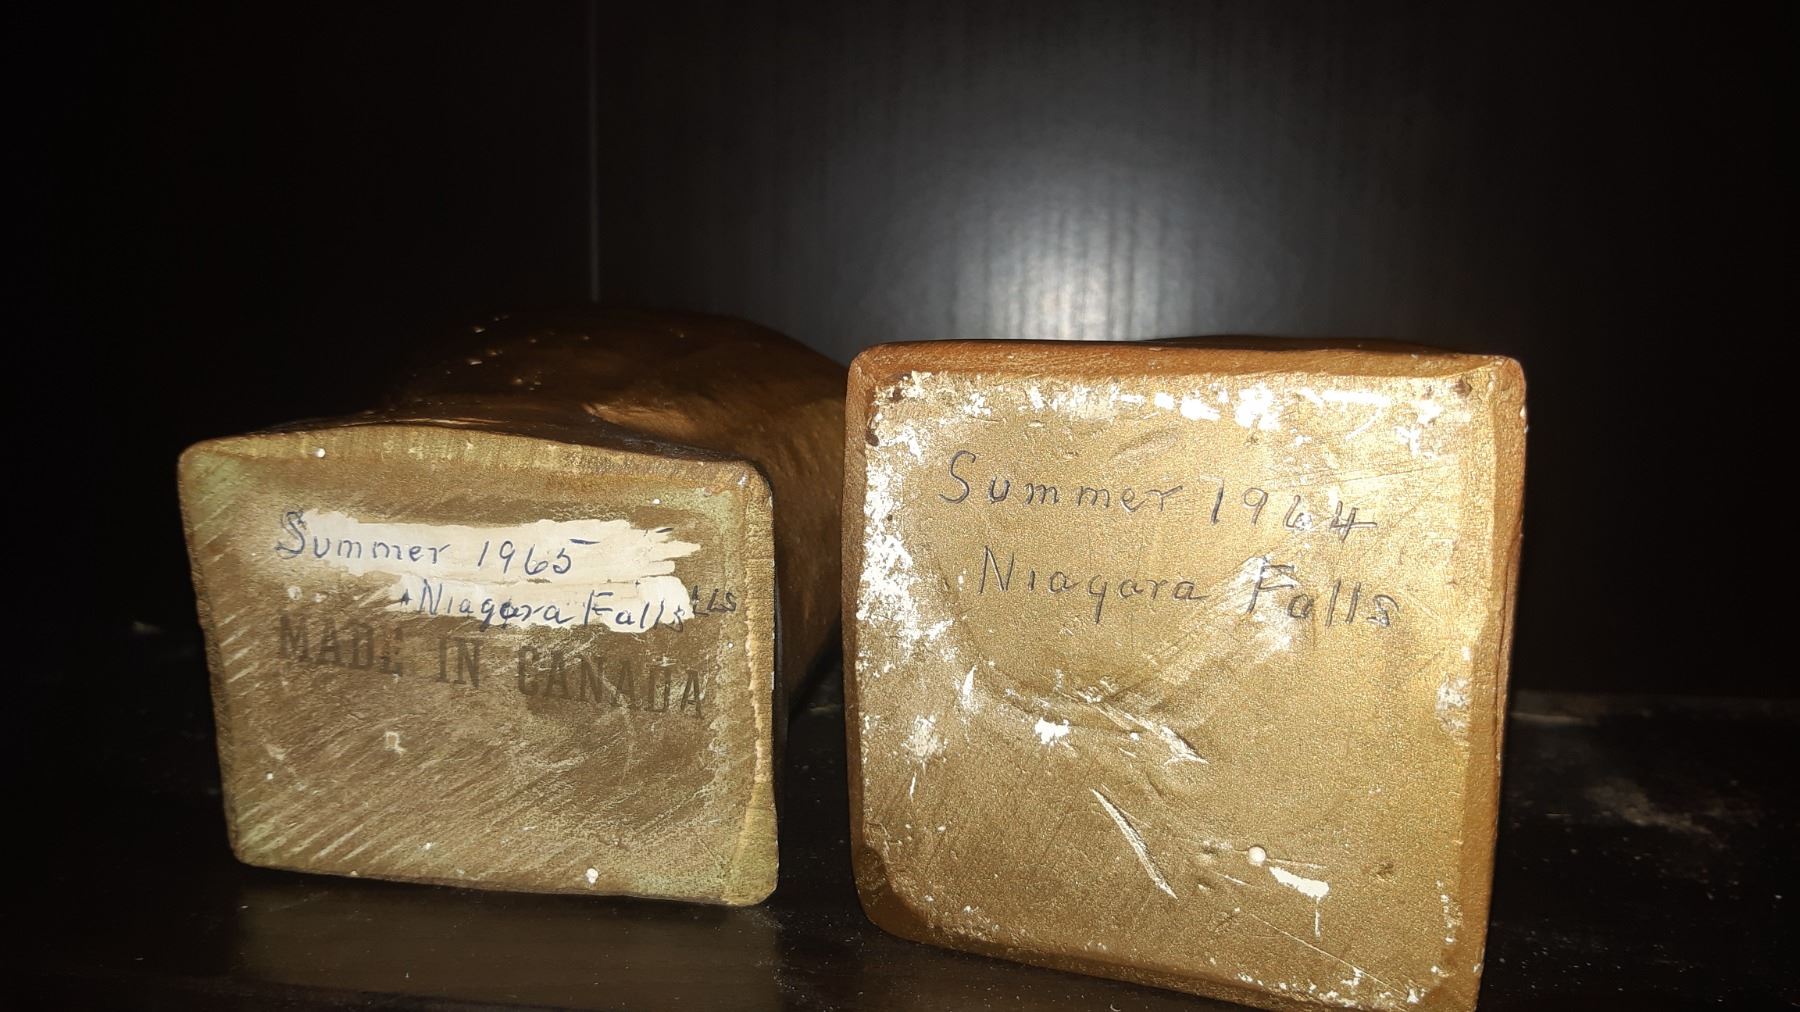 Summer 1965
Niagara Falls
MADE IN CANADA
Summer 1964
Niagara Falls